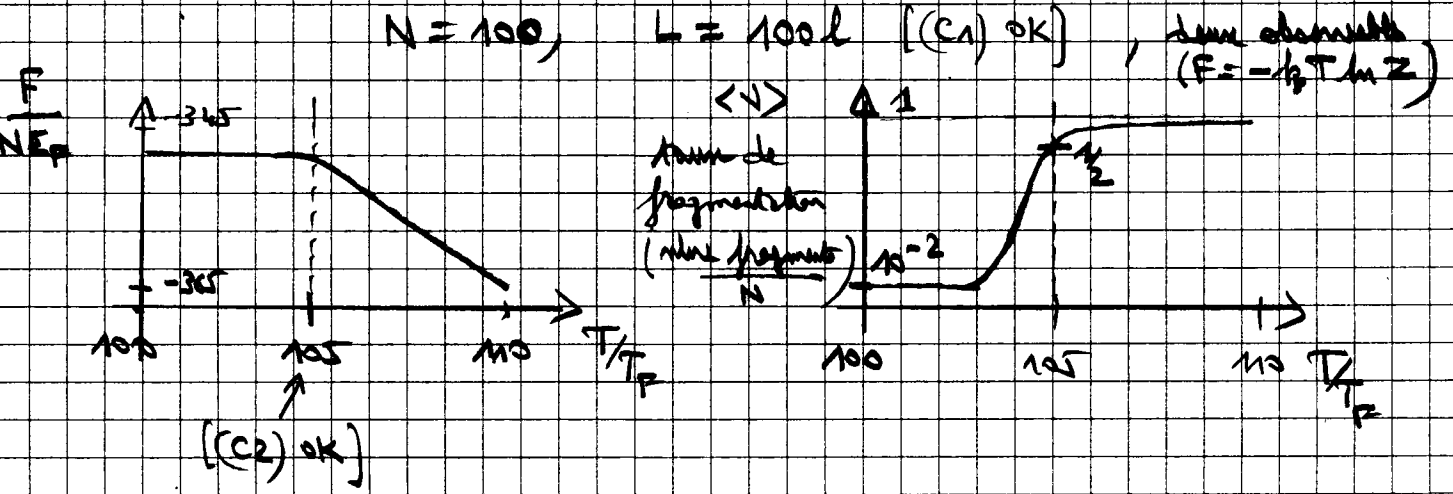 N = 100, L = 100 l [(C1) OK], deux observables
(F = -k_B T ln Z)
F
NE_F
-345
-365
100
105
110
T/T_F
[(C2) OK]
<ν>
1
taux de
fragmentation
(nbre fragments)
N
10^-2
1/2
100
105
110
T/T_F